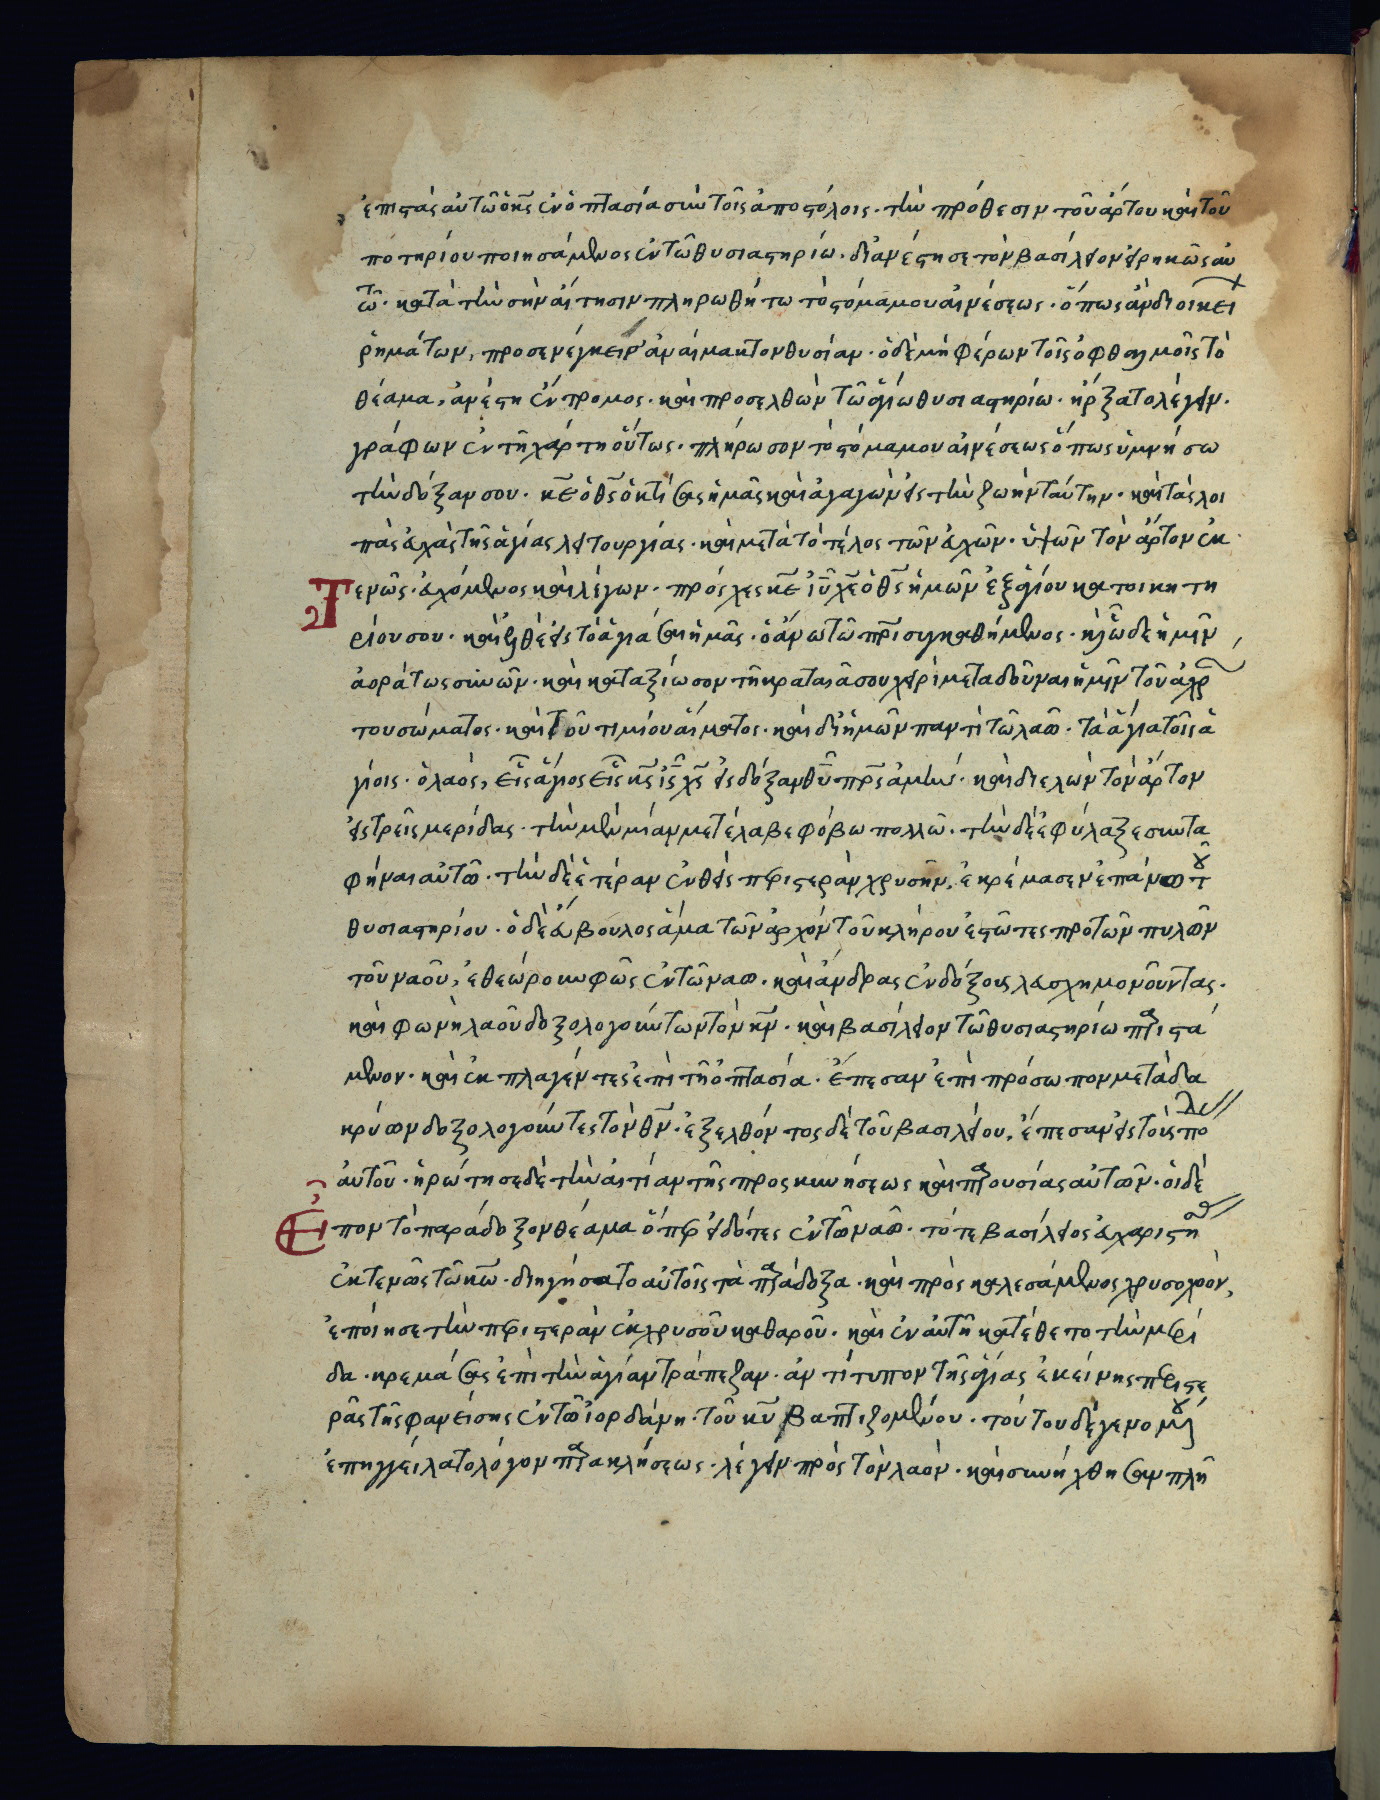 ἐπιστὰς αὐτῶ ὁ κ̅ς̅ ἐν ὀπτασία σὺν τοῖς ἀποστόλοις· τὴν πρόθεσιν τοῦ ἄρτου καὶ τοῦ
ποτηρίου ποιησάμενος ἐν τῶ θυσιαστηρίω· διανέστησε τὸν βασίλειον εἰρηκῶς αὐ
τῶ· κατὰ τὴν σὴν αἴτησιν πληρωθήτω τὸ στόμα μου αἰνέσεως· ὅπως ἂν δι οἰκεί
ρημάτων, προσενέγκειν ἀναίμακτον θυσίαν· ὁ δὲ μὴ φέρων τοῖς ὀφθαλμοῖς τὸ
θέαμα, ἀνέστη ἔντρομος· καὶ προσελθὼν τῶ ἁγίω θυσιαστηρίω· ἤρξατο λέγειν·
γράφων ἐν τῆ χάρτη οὕτως· πλήρωσον τὸ στόμα μου αἰνέσεως ὅπως ὑμνήσω
τὴν δόξαν σου· κ̅ε̅ ὁ θ̅ς̅ ὁ κτίσας ἡμᾶς καὶ ἀγαγὼν εἰς τὴν ζωὴν ταύτην· καὶ τὰς λοι
πὰς εὐχὰς τῆς ἁγίας λειτουργίας· καὶ μετὰ τὸ τέλος τῶν εὐχῶν· ὑψῶν τὸν ἄρτον ἐκ
τενῶς· εὐχόμενος καὶ λέγων· πρόσχες κ̅ε̅ ἰ̅υ̅ χ̅ε̅ ὁ θ̅ς̅ ἡμῶν ἐξ ἁγίου κατοικητη
ρίου σου· καὶ ἐλθὲ εἰς τὸ ἁγιάσαι ἡμᾶς· ὁ ἄνω τῶ π̅ρ̅ι̅ συγκαθήμενος· καὶ ὧδε ἡμῖν
ἀοράτως συνῶν· καὶ καταξίωσον τῆ κραταιᾶ σου χειρὶ μεταδοῦναι ἡμῖν τοῦ ἀχρ
του σώματος· καὶ τοῦ τιμίου αἵματος· καὶ δι ἡμῶν παντὶ τῶ λαῶ· τὰ ἅγια τοῖς ἁ
γίοις· ὁ λαὸς, εἷς ἅγιος εἷς κ̅ς̅ ἰ̅ς̅ χ̅ς̅ εἰς δόξαν θ̅υ̅ π̅ρ̅ς̅ ἀμήν· καὶ διελὼν τὸν ἄρτον
εἰς τρεῖς μερίδας· τὴν μὲν μίαν μετέλαβε φόβω πολλῶ· τὴν δὲ ἐφύλαξε συντα
φῆναι αὐτῶ· τὴν δὲ ἑτέραν ἐνθεὶς περιστερὰν χρυσῆν, ἐκρέμασεν ἐπάνω τοῦ
θυσιαστηρίου· ὁ δὲ εὔβουλος ἅμα τῶν ἀρχόν τοῦ κλήρου ἑστῶτες πρὸ τῶν πυλῶν
τοῦ ναοῦ, ἐθεώρουν φῶς ἐν τῶ ναῶ· καὶ ἄνδρας ἐνδόξους λευσχημονοῦντας·
καὶ φωνὴ λαοῦ δοξολογούντων τὸν κ̅ν̅· καὶ βασίλειον τῶ θυσιαστηρίω παριστά
μενον· καὶ ἐκπλαγέντες ἐπὶ τῆ ὀπτασία· ἔπεσαν ἐπὶ πρόσωπον μετὰ δα
κρύων δοξολογοῦντες τὸν θ̅ν̅· ἐξελθόντος δὲ τοῦ βασιλείου, ἔπεσαν εἰς τοὺς πο
αὐτοῦ· ἠρώτησε δὲ τὴν αἰτίαν τῆς προσκυνήσεως καὶ παρουσίας αὐτῶν· οἱ δὲ
εἶπον τὸ παράδοξον θέαμα ὅπερ εἰδότες ἐν τῶ ναῶ· τότε βασίλειος εὐχαριστη
ἐκτενῶς τῶ κ̅ω̅· διηγήσατο αὐτοῖς τὰ παράδοξα· καὶ προσκαλεσάμενος χρυσοχοὸν,
ἐποίησε τὴν περιστερὰν ἐκ χρυσοῦ καθαροῦ· καὶ ἐν αὐτῆ κατέθετο τὴν μερί
δα· κρεμάσας ἐπὶ τὴν ἁγίαν τράπεζαν· ἀντίτυπον τῆς ἁγίας ἐκείνης περιστε
ρᾶς τῆς φανείσης ἐν τῶ ἰορδάνη· τοῦ κ̅υ̅ βαπτιζομένου· τούτου δὲ γενομέν
ἐπηγγείλατο λόγον παρακλήσεως· λέγειν πρὸς τὸν λαὸν· καὶ συνήχθησαν πλῆ